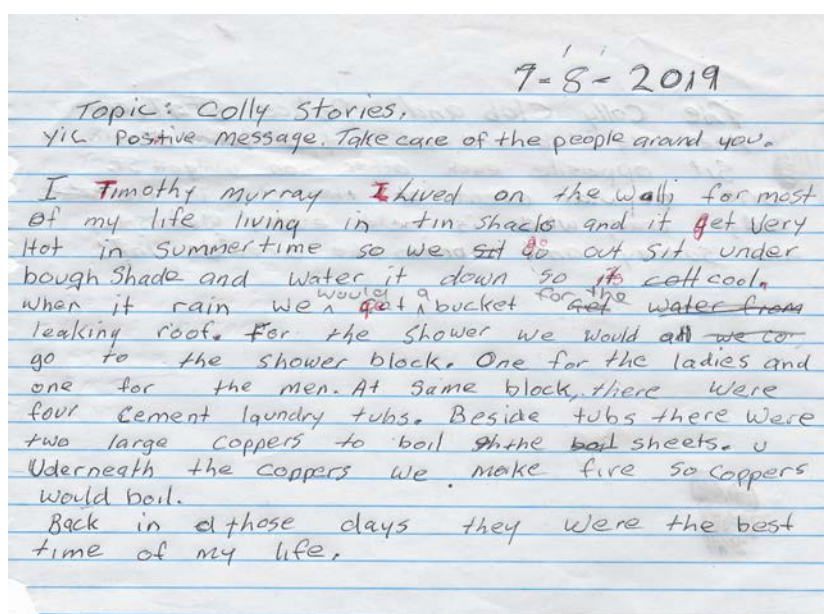 7-8-2019
Topic: Colly Stories.
Yic Positive message. Take care of the people around you.
I Timothy Murray I Lived on the Walli for most
of my life living in tin shacks and it get Very
Hot in Summertime so we sit go out sit under
bough Shade and water it down so its cool.
when it rain we would get a bucket for the water from
leaking roof. For the shower we would all we
go to the shower block. One for the ladies and
one for the men. At same block, there were
four Cement laundry tubs. Beside tubs there Were
two large coppers to boil the boil sheets. U
Uderneath the coppers we make fire so coppers
would boil.
Back in those days they were the best
time of my life.